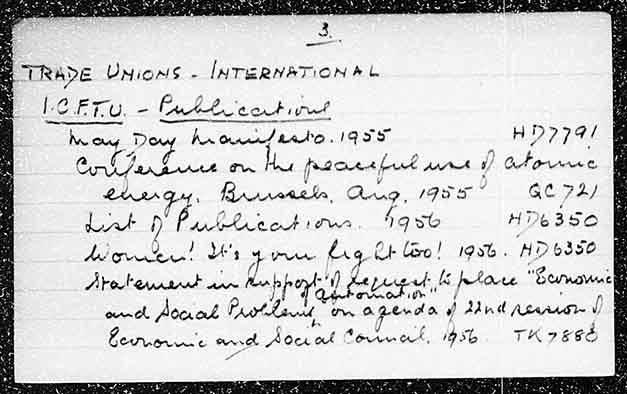 3.
TRADE UNIONS - INTERNATIONAL
I.C.F.T.U. - Publications
May Day Manifesto. 1955 HD7791
Conference on the peaceful use of atomic
energy, Brussels, Aug. 1955 QC721
List of Publications. 1956 HD6350
Women! It's your fight too! 1956. HD6350
Statement in support of request to place "Economic
and Social Problems of Automation" on agenda of 22nd session of
Economic and Social Council. 1956 TK7880